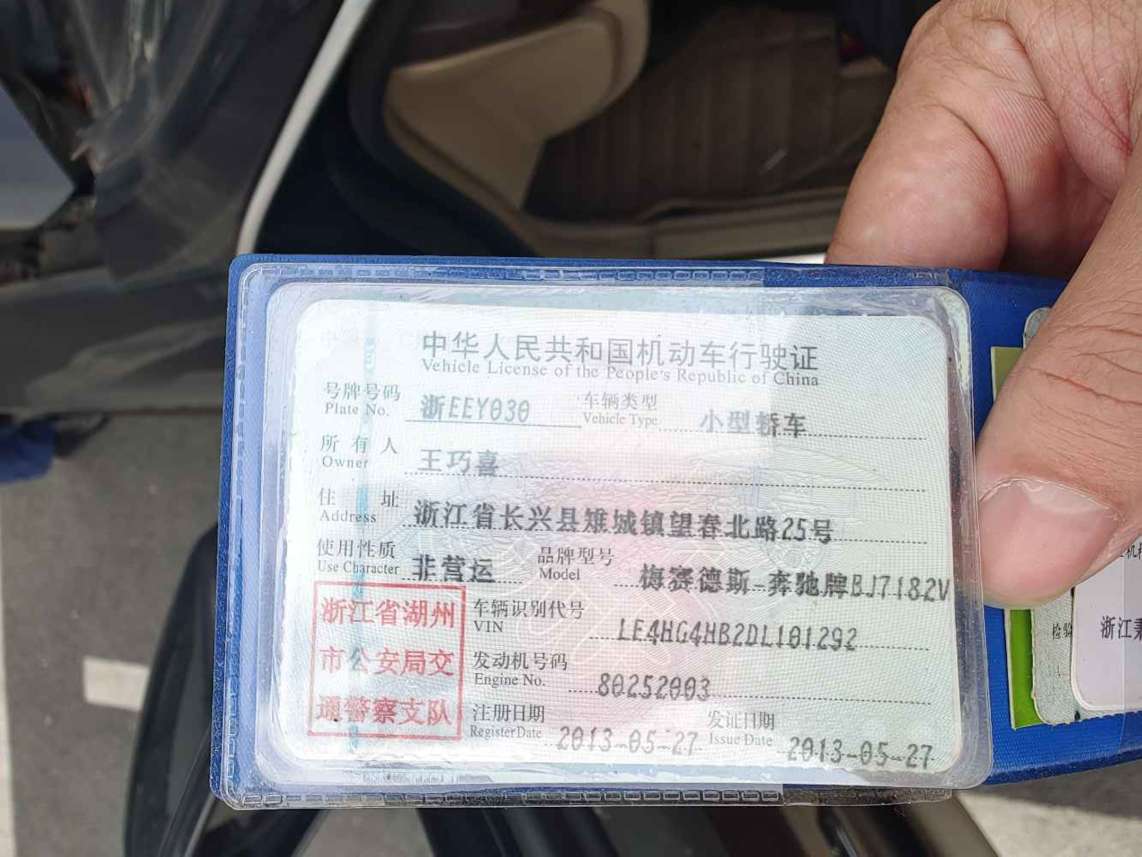 中华人民共和国机动车行驶证
Vehicle License of the People's Republic of China
号牌号码 浙EEY030 车辆类型 小型轿车
Plate No. Vehicle Type
所有人 王巧喜
Owner
住址 浙江省长兴县雉城镇望春北路25号
Address
使用性质 非营运 品牌型号 梅赛德斯-奔驰牌BJ7182V
Use Character Model
浙江省湖州
市公安局交
通警察支队
车辆识别代号 LE4HG4HB2DL101292
VIN
发动机号码 80252003
Engine No.
注册日期 2013-05-27 发证日期 2013-05-27
Register Date Issue Date
检验
浙江